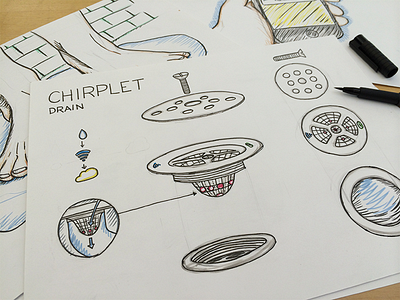 CHIRPLET
DRAIN